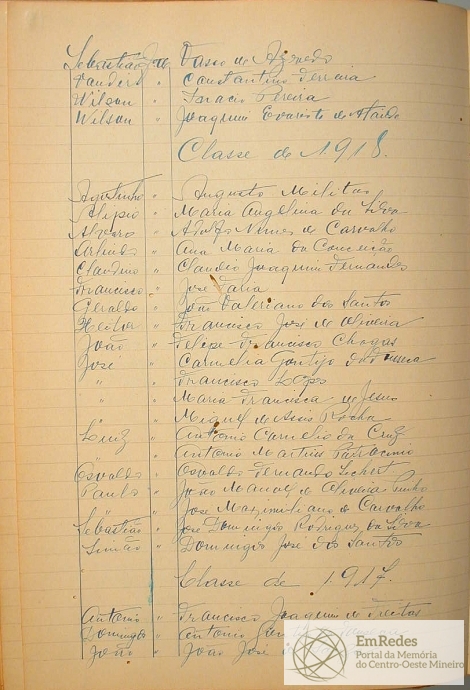 Sebastião, fo de Vasso de Azevedo
Vanderl " Constantino Ferreira
Wilson " Ignacio Pereira
Wilson " Joaquim Evaristo de Ataide
Classe de 1.918.
Agostinho " Augusto Militão
Alipio " Maria Angelina da Silva
Alvaro " Adolfo Nunes de Carvalho
Arlindo " Ana Maria da Conceição
Claudino " Claudio Joaquim Fernandes
Francisco " José Faria
Geraldo " João Valeriano dos Santos
Heitor " Francisco José de Oliveira
João " Felipe Francisco Chagas
José " Carmelia Gontijo da Fonseca
" " Francisco Lopes
" " Maria Francisca de Jesus
" " Miguel de Assis Rocha
Luiz " Antonio Carmelio da Cruz
" " Antonio Martins Patrocinio
Osvaldo " Osvaldo Fernando
Paulo " João Manoel de Oliveira Pinho
" " José Maximiliano de Carvalho
Sebastião " José Domingos Rodrigues da Silva
Simão " Domingos José dos Santos
Classe de 1.917.
Antonio " Francisco Joaquim de Freitas
Domingos " Antonio
João " João José
EmRedes
Portal da Memória
do Centro-Oeste Mineiro